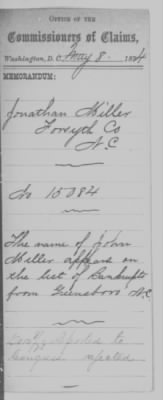 OFFICE OF THE
Commissioners of Claims,
Washington, D. C. May 8. 1874
MEMORANDUM:
Jonathan Miller
Forsyth Co
N.C
No 15384
The name of John
Miller appears on
the list of Bankrupts
from Greensboro N.C
reported to
Congress